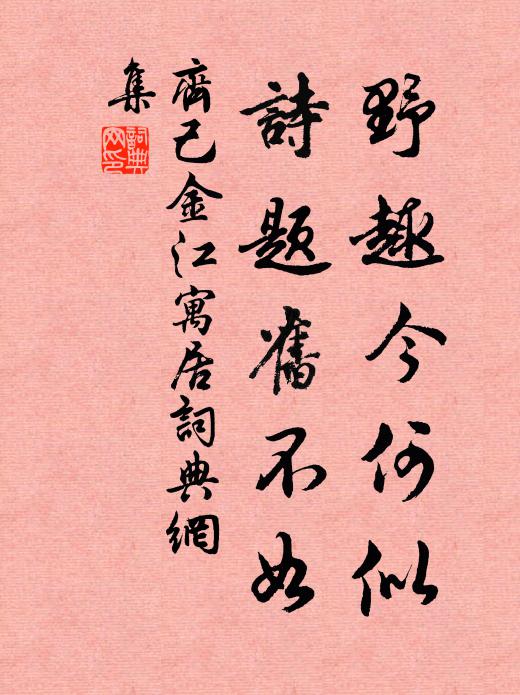 野趣今何似
詩題舊不如
齊己金江寓居詞典網
集
詞典
网印